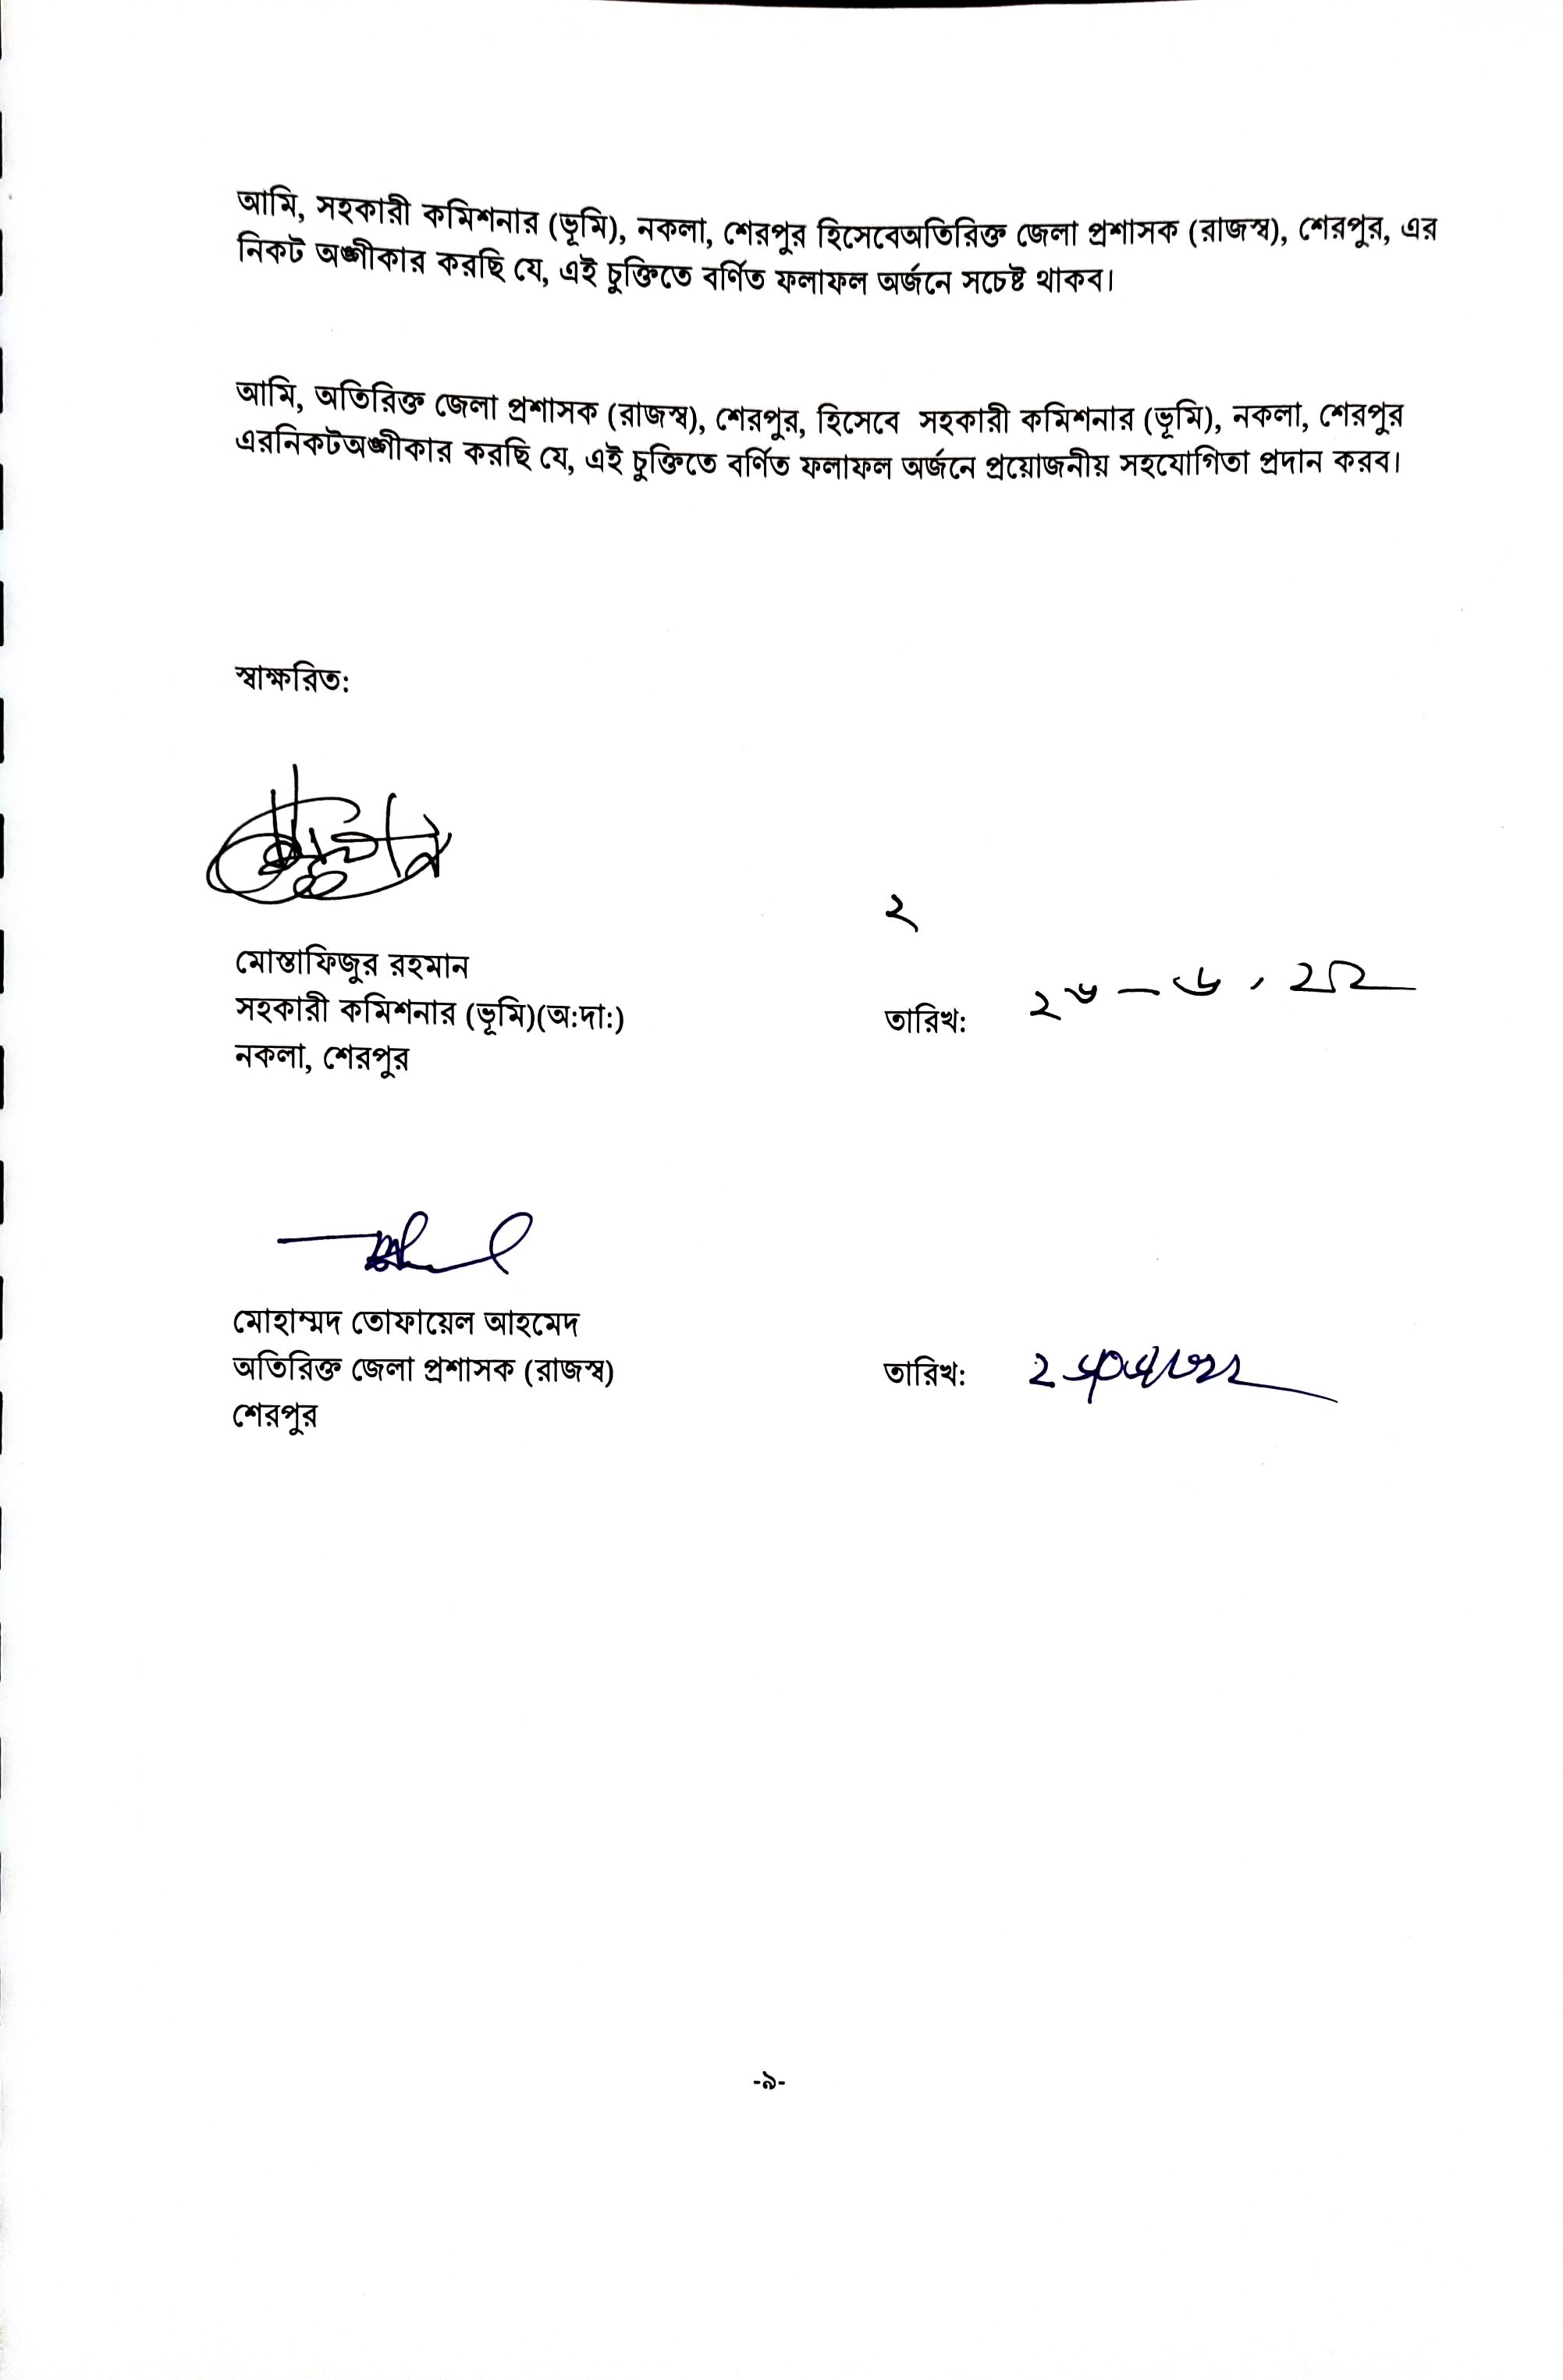 আমি, সহকারী কমিশনার (ভূমি), নকলা, শেরপুর হিসেবেঅতিরিক্ত জেলা প্রশাসক (রাজস্ব), শেরপুর, এর
নিকট অঙ্গীকার করছি যে, এই চুক্তিতে বর্ণিত ফলাফল অর্জনে সচেষ্ট থাকব।
আমি, অতিরিক্ত জেলা প্রশাসক (রাজস্ব), শেরপুর, হিসেবে সহকারী কমিশনার (ভূমি), নকলা, শেরপুর
এরনিকটঅঙ্গীকার করছি যে, এই চুক্তিতে বর্ণিত ফলাফল অর্জনে প্রয়োজনীয় সহযোগিতা প্রদান করব।
স্বাক্ষরিত:
২
মোস্তাফিজুর রহমান
সহকারী কমিশনার (ভূমি)(অ:দা:)
তারিখ:
নকলা, শেরপুর
মোহাম্মদ তোফায়েল আহমেদ
অতিরিক্ত জেলা প্রশাসক (রাজস্ব)
তারিখ:
শেরপুর
-৯-